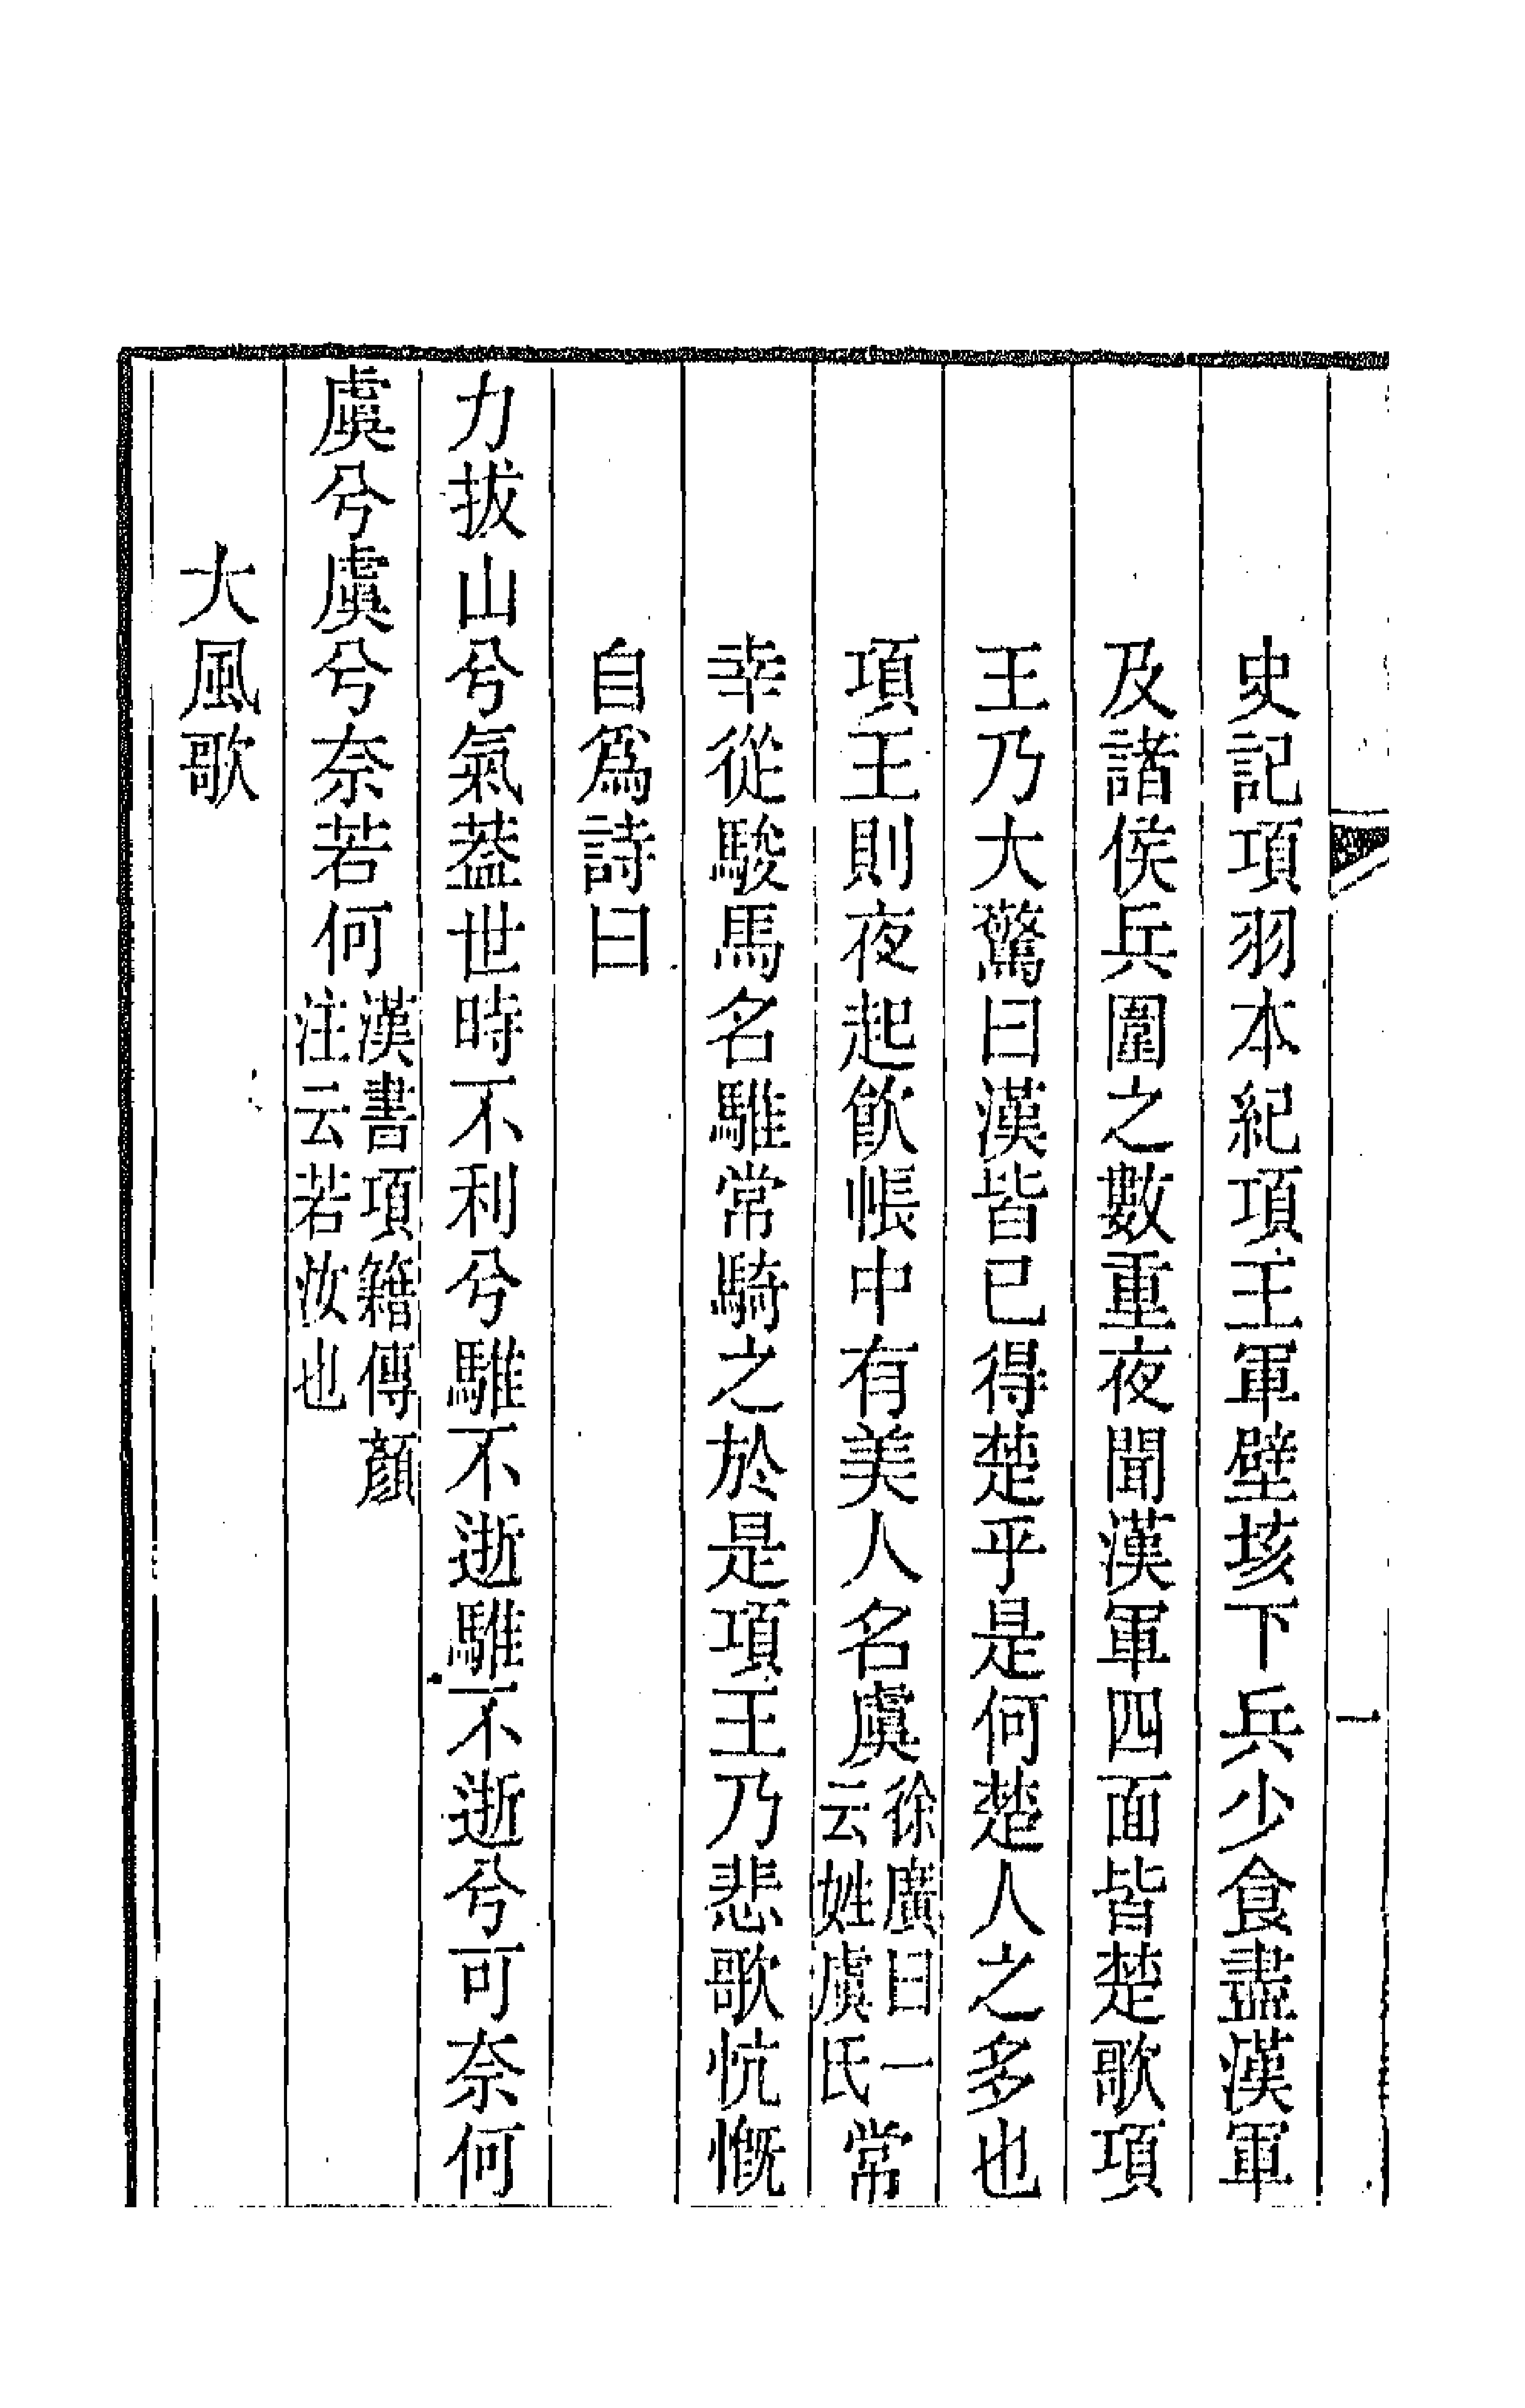 一
史記項羽本紀項王軍壁垓下兵少食盡漢軍
及諸侯兵圍之數重夜聞漢軍四面皆楚歌項
王乃大驚曰漢皆已得楚乎是何楚人之多也
項王則夜起飮帳中有美人名虞徐廣曰一云姓虞氏常
幸從駿馬名騅常騎之於是項王乃悲歌忼慨
自爲詩曰
力拔山兮氣葢世時不利兮騅不逝騅不逝兮可奈何
虞兮虞兮奈若何漢書項籍傳顏注云若汝也
大風歌